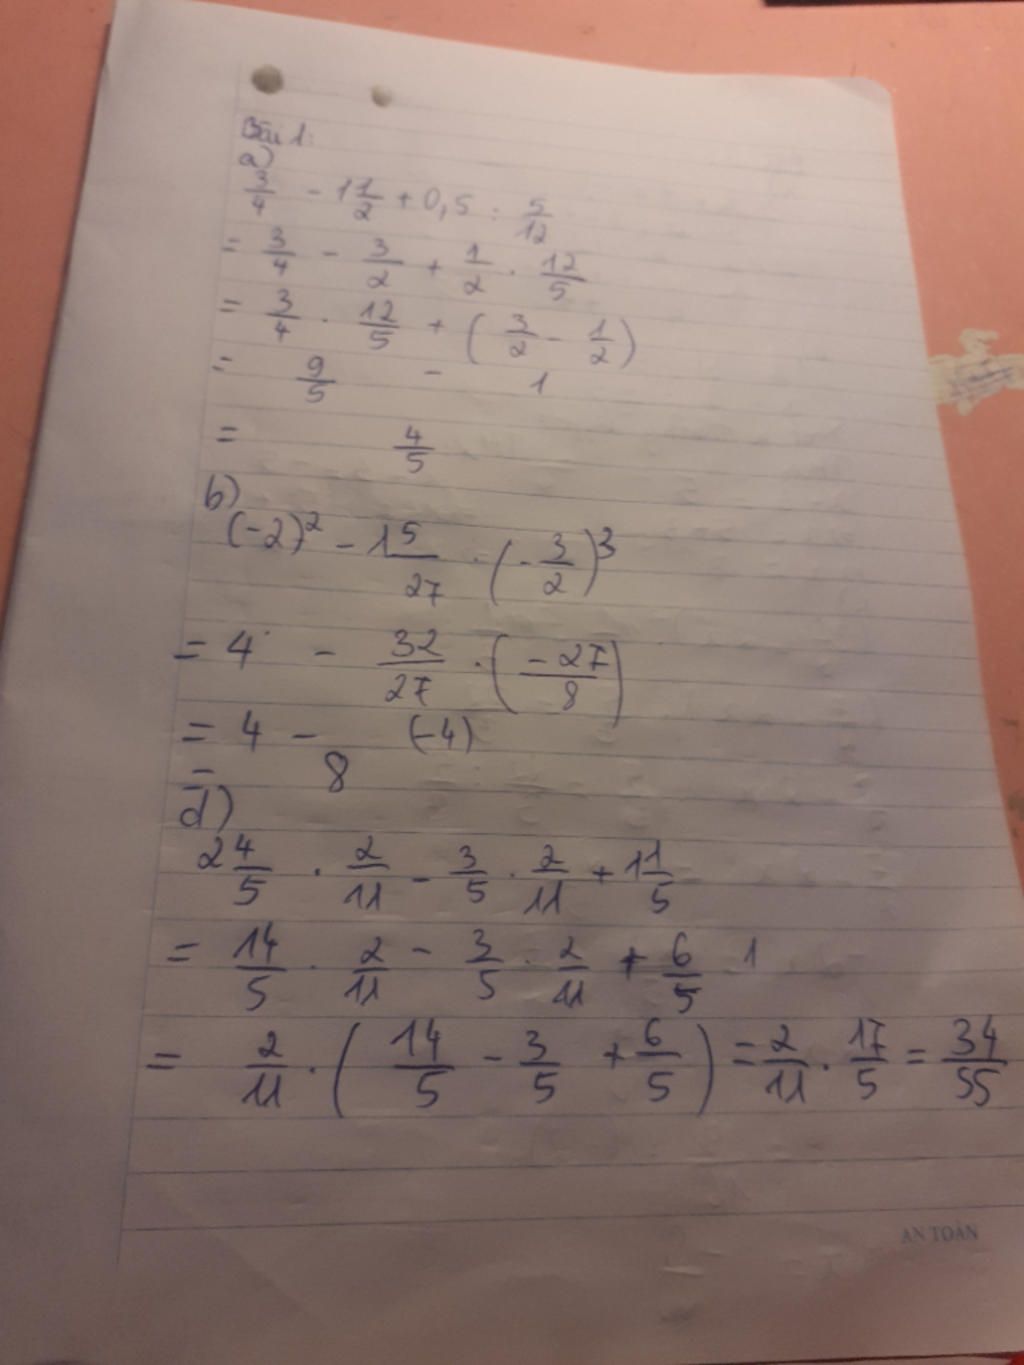 Bài 1:
a)
3/4 - 1 1/2 + 0,5 : 5/12
= 3/4 - 3/2 + 1/2 . 12/5
= 3/4 . 12/5 + ( 3/2 - 1/2 )
= 9/5 - 1
= 4/5
b)
(-2)² - 1 5/27 . ( - 3/2 )³
= 4 - 32/27 . ( -27/8 )
= 4 - (-4)
= 8
d)
2 4/5 . 2/11 - 3/5 . 2/11 + 1 1/5
= 14/5 . 2/11 - 3/5 . 2/11 + 6/5 1
= 2/11 . ( 14/5 - 3/5 + 6/5 ) = 2/11 . 17/5 = 34/55
AN TOÀN